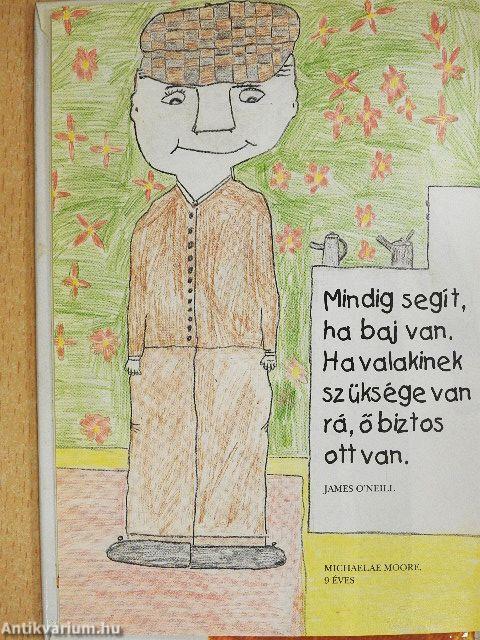 Mindig segít,
ha baj van.
Ha valakinek
szüksége van
rá, ő biztos
ott van.
JAMES O'NEILL
MICHAELAE MOORE,
9 ÉVES
Antikvárium.hu